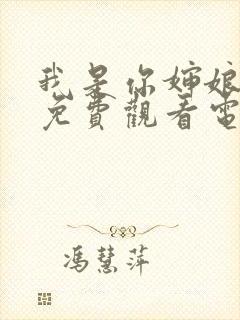 我是你婶娘
免費觀看電
馮慧萍